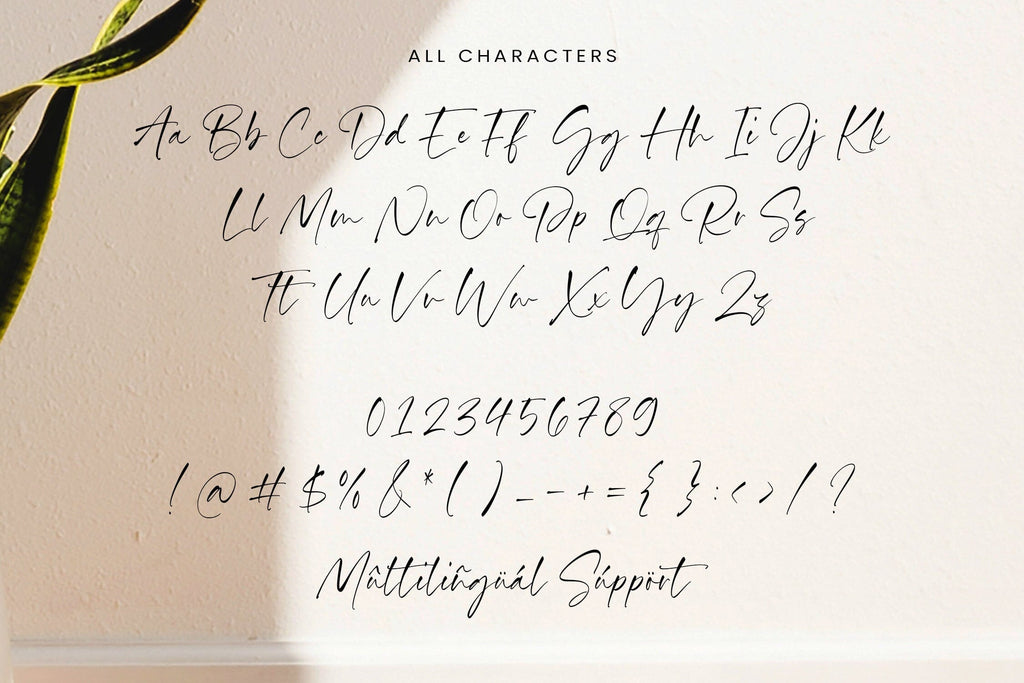 ALL CHARACTERS
Aa Bb Cc Dd Ee Ff Gg Hh Ii Jj Kk
Ll Mm Nn Oo Pp Qq Rr Ss
Tt Uu Vv Ww Xx Yy Zz
0123456789
! @ # $ % & * ( ) _ - + = { } : < > / ?
Mûltilingüál Súppört